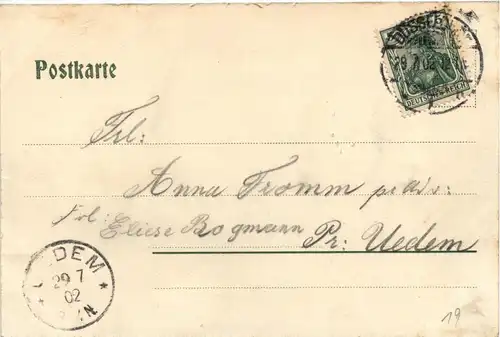 Postkarte
29 7 02
DEUTSCHES REICH
Frl:
Anna Fromm
Frl: Eliese Bogmann
Pr: Uedem
DEM
29 7
02
19